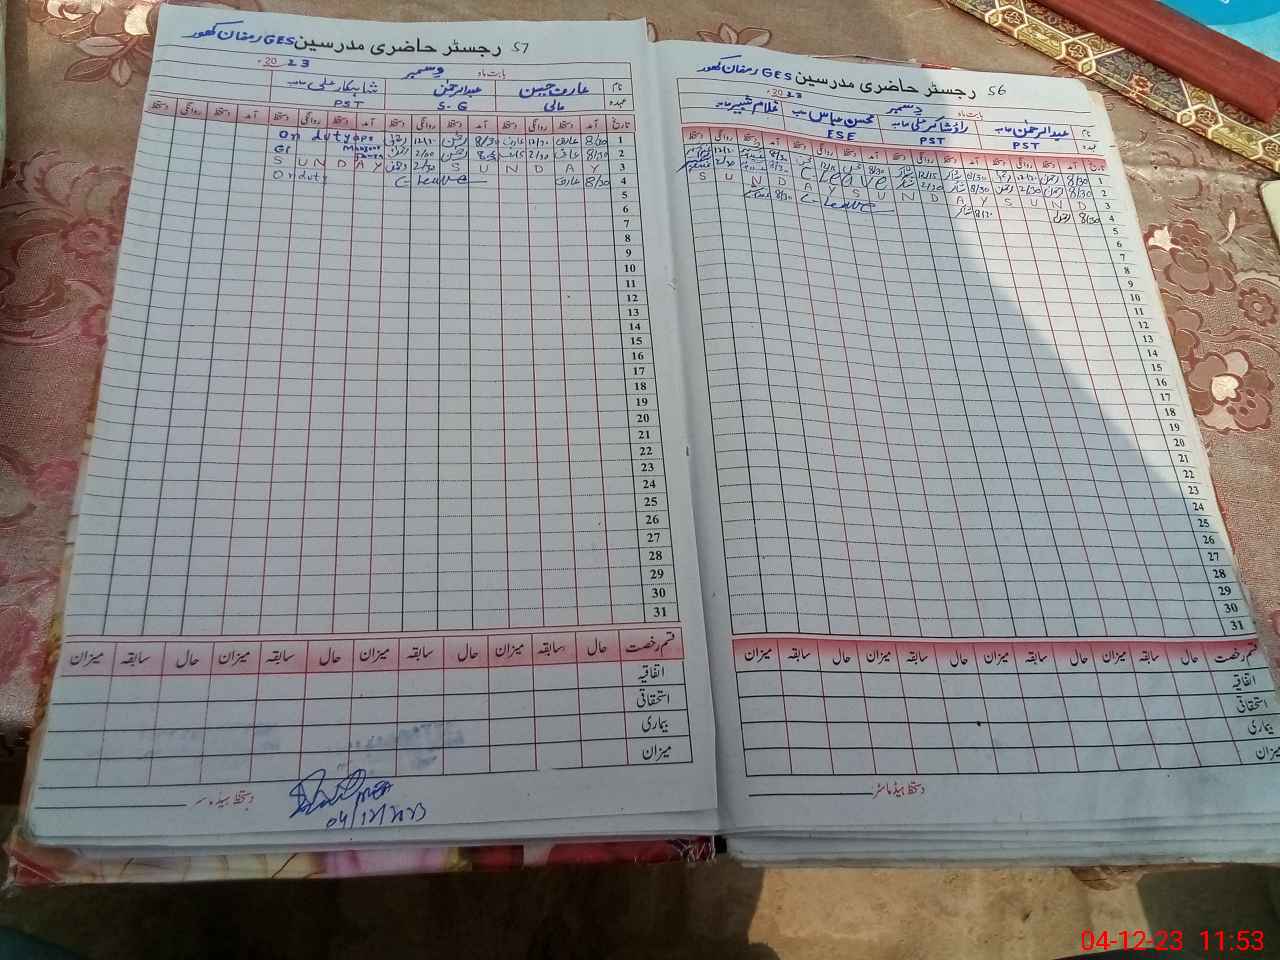 56 رجسٹر حاضری مدرسین GES رمضان کھور
بابت ماہ دسمبر 2023
نام عبدالرحمٰن صاحب راؤ شاکر علی صاحب محسن عباس صاحب غلام شبیر صاحب
عہدہ PST PST ESE
تاریخ آمد دستخط روانگی دستخط آمد دستخط روانگی دستخط آمد دستخط روانگی دستخط آمد دستخط روانگی دستخط
1 8/30 12/15 8/30 C Leave
2 8/30 2/30 8/30 2/30
3 S U N D A Y S U N D A Y S U N D
4 8/30 C Leave 8/30
5
6
7
8
9
10
11
12
13
14
15
16
17
18
19
20
21
22
23
24
25
26
27
28
29
30
31
قسم رخصت حال سابقہ میزان حال سابقہ میزان حال سابقہ میزان حال سابقہ میزان
اتفاقیہ
استحقاقی
بیماری
میزان
دستخط ہیڈ ماسٹر
57 رجسٹر حاضری مدرسین GES رمضان کھور
بابت ماہ دسمبر 2023
نام عارف حسین عبدالرحمٰن شاہکار علی صاحب
عہدہ مالی S-G PST
تاریخ آمد دستخط روانگی دستخط آمد دستخط روانگی دستخط آمد دستخط روانگی دستخط آمد دستخط روانگی
1 8/30 عارف 12/10 عارف 8/30 12/10 On duty
2 8/30 عارف 2/30 عارف 2/30
3 S U N D A Y S U N D A Y
4 8/30 عارف C Leave On duty
5
6
7
8
9
10
11
12
13
14
15
16
17
18
19
20
21
22
23
24
25
26
27
28
29
30
31
قسم رخصت حال سابقہ میزان حال سابقہ میزان حال سابقہ میزان حال سابقہ میزان
اتفاقیہ
استحقاقی
بیماری
میزان
دستخط ہیڈ ماسٹر
04/12/2023
04-12-23 11:53